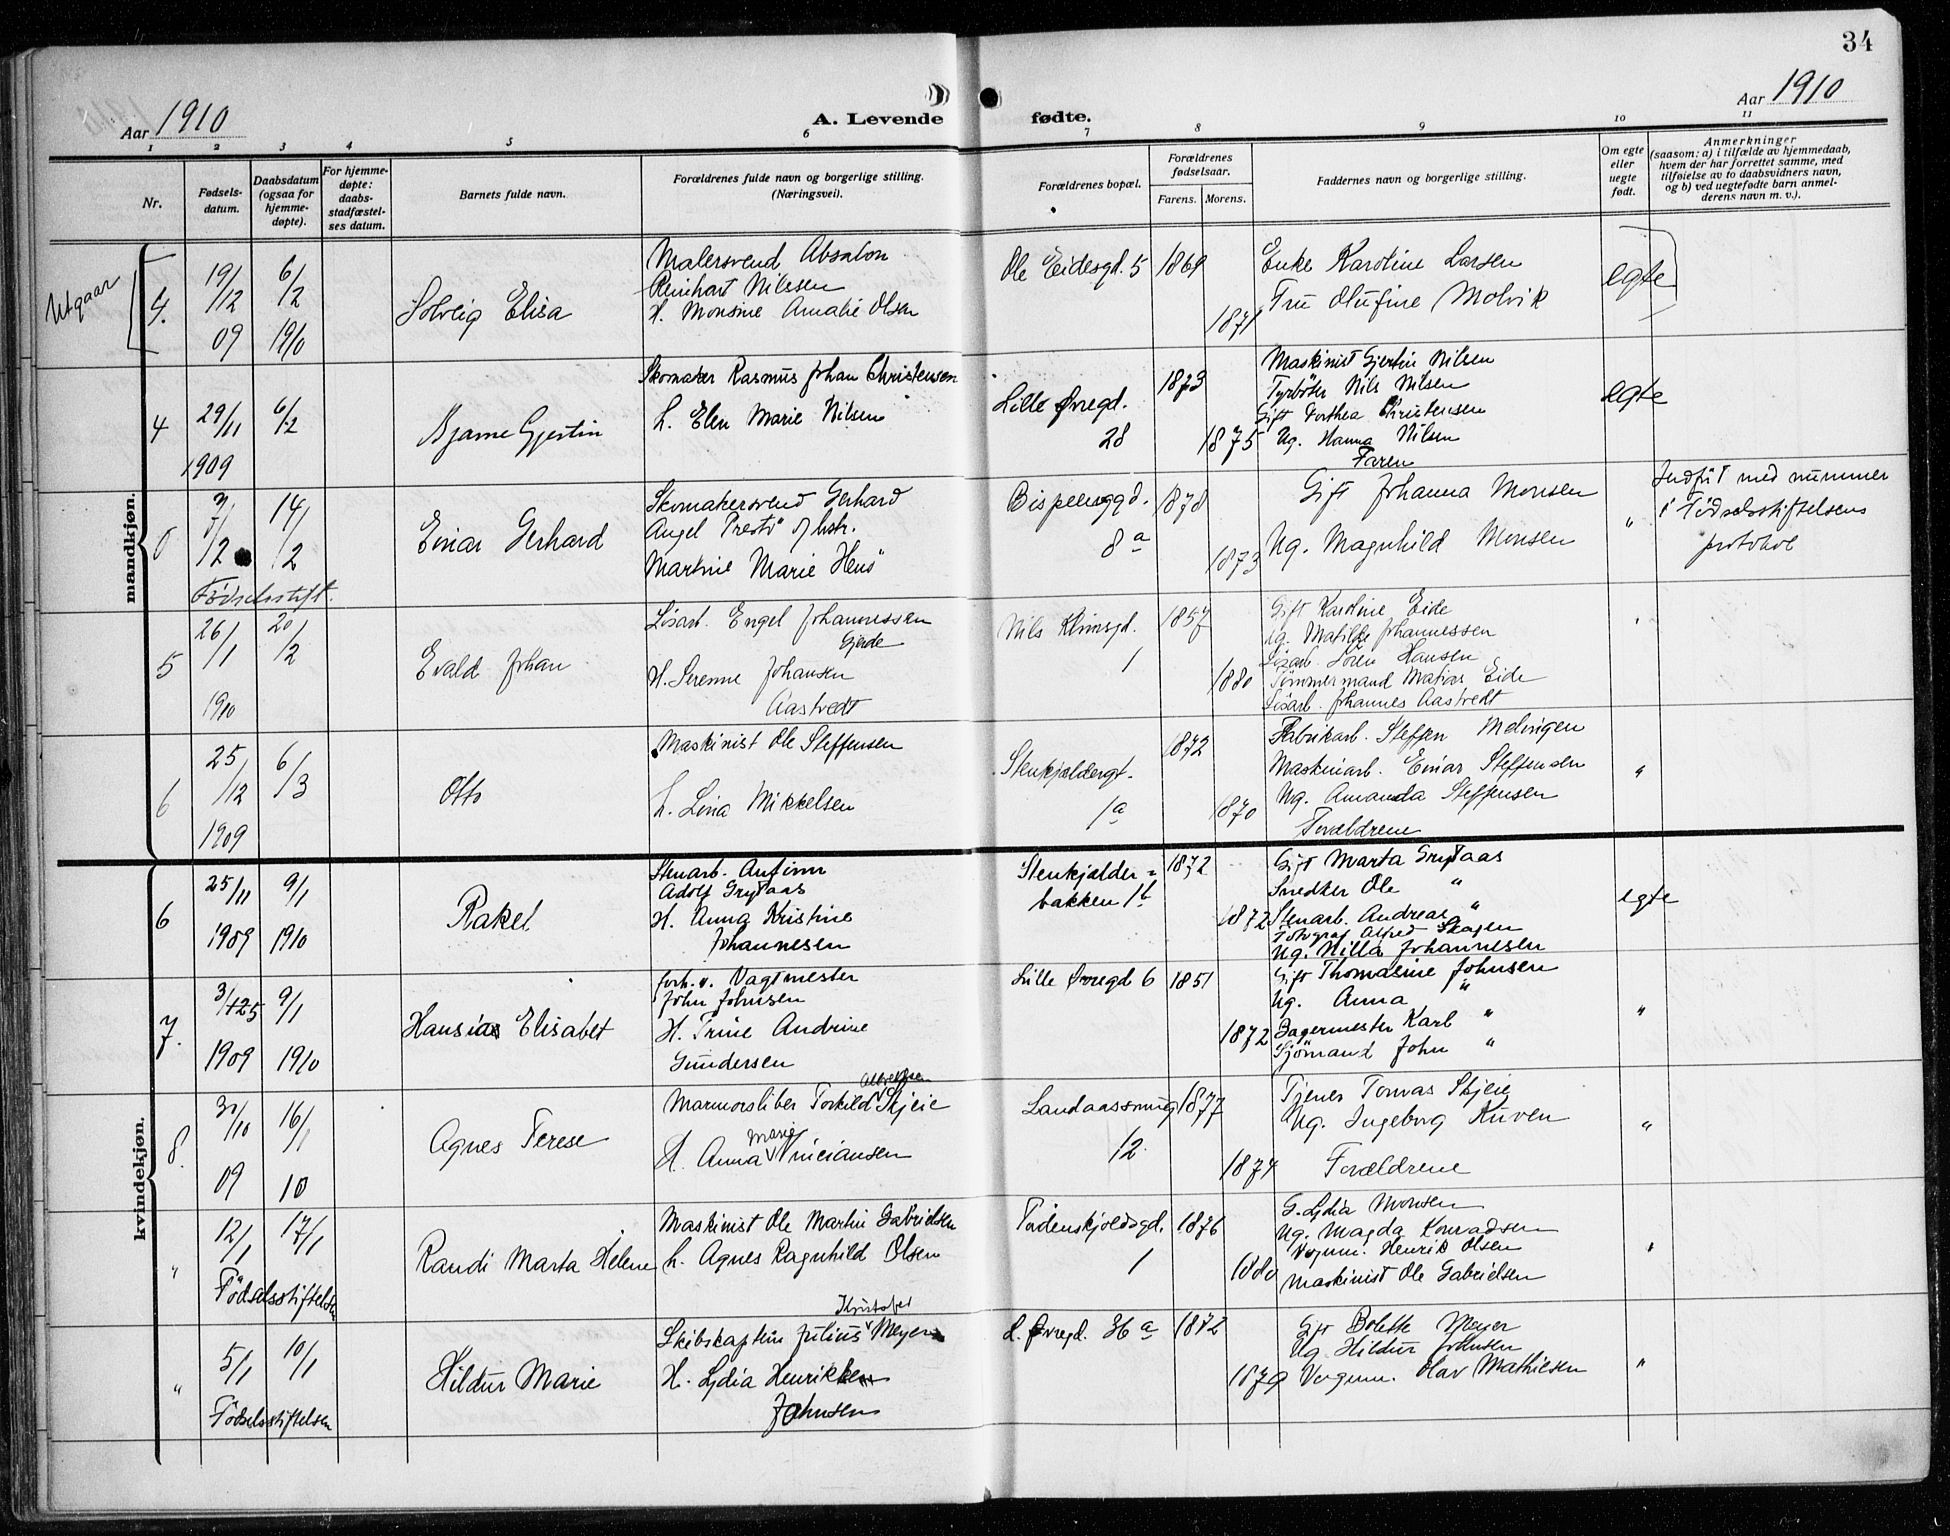 34
Aar 1910
A. Levende fødte.
Aar 1910
1 2 3 4 5 6 7 8 9 10 11
Nr.
Fødsels-
datum.
Daabsdatum
(ogsaa for
hjemme-
døpte).
For hjemme-
døpte:
daabs-
stadfæstel-
ses datum.
Barnets fulde navn.
Forældrenes fulde navn og borgerlige stilling.
(Næringsvei).
Forældrenes bopæl.
Forældrenes
fødselsaar.
Farens. Morens.
Faddernes navn og borgerlige stilling.
Om egte
eller
uegte
født.
Anmerkninger
(saasom: a) i tilfælde av hjemmedaab,
hvem der har forrettet samme, med
tilføielse av to daabsvidners navn,
og b) ved uegtefødte barn anmel-
derens navn m. v.).
mandkjøn.
Utgaar
4.
19/12 09
6/2 1910
Solveig Elisa
Malersvend Absalon
Reinhart Nilssen
H. Monsine Amalie Olsen
Ole Eidesgd. 5
1869
1871
Enke Karoline Larsen
Fru Olufine Molvik
egte
4
29/11 1909
6/2
Bjarne Gjertin
Skomaker Rasmus Johan Christensen
h. Elen Marie Nilsen
Lille Øvregd.
28
1873
1875
Maskinist Gjertin Nilsen
Fyrbøter Nils Nilsen
Gift Dorthea Christensen
Ug. Hanna Nilsen
Faren
egte
0
/12
14/2
Fødselsstift.
Einar Gerhard
Skomakersvend Gerhard
Angel Prestø og hstr.
Martine Marie Henø
Bispeengsgd.
8a
1878
1873
Gift Johanna Monsen
Ug. Magnhild Monsen
"
Indført med nummer
i Fødselsstiftelsens
protokol
5
26/1 1910
20/2
Evald Johan
Løsarb. Engel Johannessen
Gjerde
H. Serenne Johansen
Aastvedt
Nils Klimsgd.
1
1857
1880
Gift Karoline Eide
Ug. Matilde Johannessen
Løsarb. Søren Hansen
Tømmermand Matias Eide
Løsarb. Johannes Aastvedt
"
6
25/12 1909
6/3
Otto
Maskinist Ole Steffensen
h. Lina Mikkelsen
Stenkjeldergt.
1a
1872
1870
Fabrikarb. Steffen Melingen
Maskinarb. Einar Steffensen
Ug. Amanda Steffensen
Forældrene
"
kvindekjøn.
6
25/11 1909
9/1 1910
Rakel
Stenarb. Anfinn
Adolf Grytaas
H. Anna Kristine
Johannesen
Stenkjelder=
bakken 1b
1872
1872
Gift Marta Grytaas
Snedker Ole "
Stenarb. Andreas "
Fotograf Alfred Skagen
Ug. Nilla Johannesen
egte
7.
3/12 1909
9/1 1910
Hansine Elisabet
forh.v. Vagtmester
John Johnsen
H. Trine Andrine
Gundersen
Lille Øvregd 6
1851
1872
Gift Thomasine Johnsen
Ug. Anna "
Bagermester Karl "
Sjømand John "
"
8.
30/10 09
16/1 10
Agnes Terese
Marmorsliber Torkild Skjeie
H. Anna Marie
Landaassmug
12
1877
1874
Tjener Tomas Skjeie
Ug. Ingeborg Kuven
Forældrene
"
"
12/1
17/1
Fødselsstiftelsen
Randi Marta Helene
Maskinist Ole Martin Gabrielsen
h. Agnes Ragnhild Olsen
Tordenskjoldsgd.
1
1876
1880
G. Lydia Monsen
Ug. Magda Konradsen
Vognm. Henrik Olsen
Maskinist Ole Gabrielsen
"
"
5/1
10/1
Fødselsstiftelsen
Hildur Marie
Kristofer
Skibskaptein Julius Meyer
H. Lydia Henrikken
Johnsen
L. Øvregd. 36a
1872
1879
Gift Bolette Meyer
Ug. Hildur Johnsen
Vognm. Olav Mathiesen
"